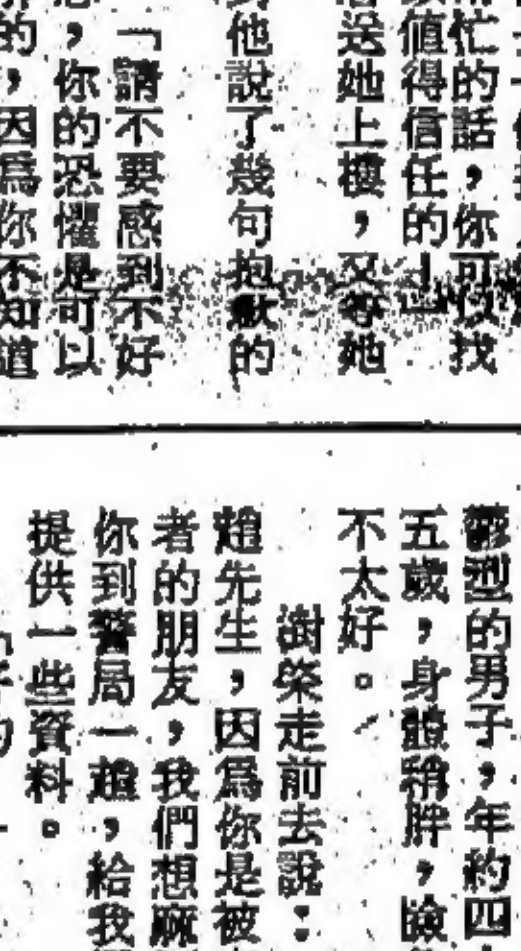 忙的話，你可以找
值得信任的！」
送她上樓，又等她
他說了幾句抱歉的
「請不要感到不好
，你的恐懼是可以
的，因爲你不知道
鬱型的男子，年約四
五歲，身體稍胖，臉
不太好。
樹榮走前去說：
趙先生，因爲你是被
者的朋友，我們想麻
你到警局一趟，給我
提供一些資料。